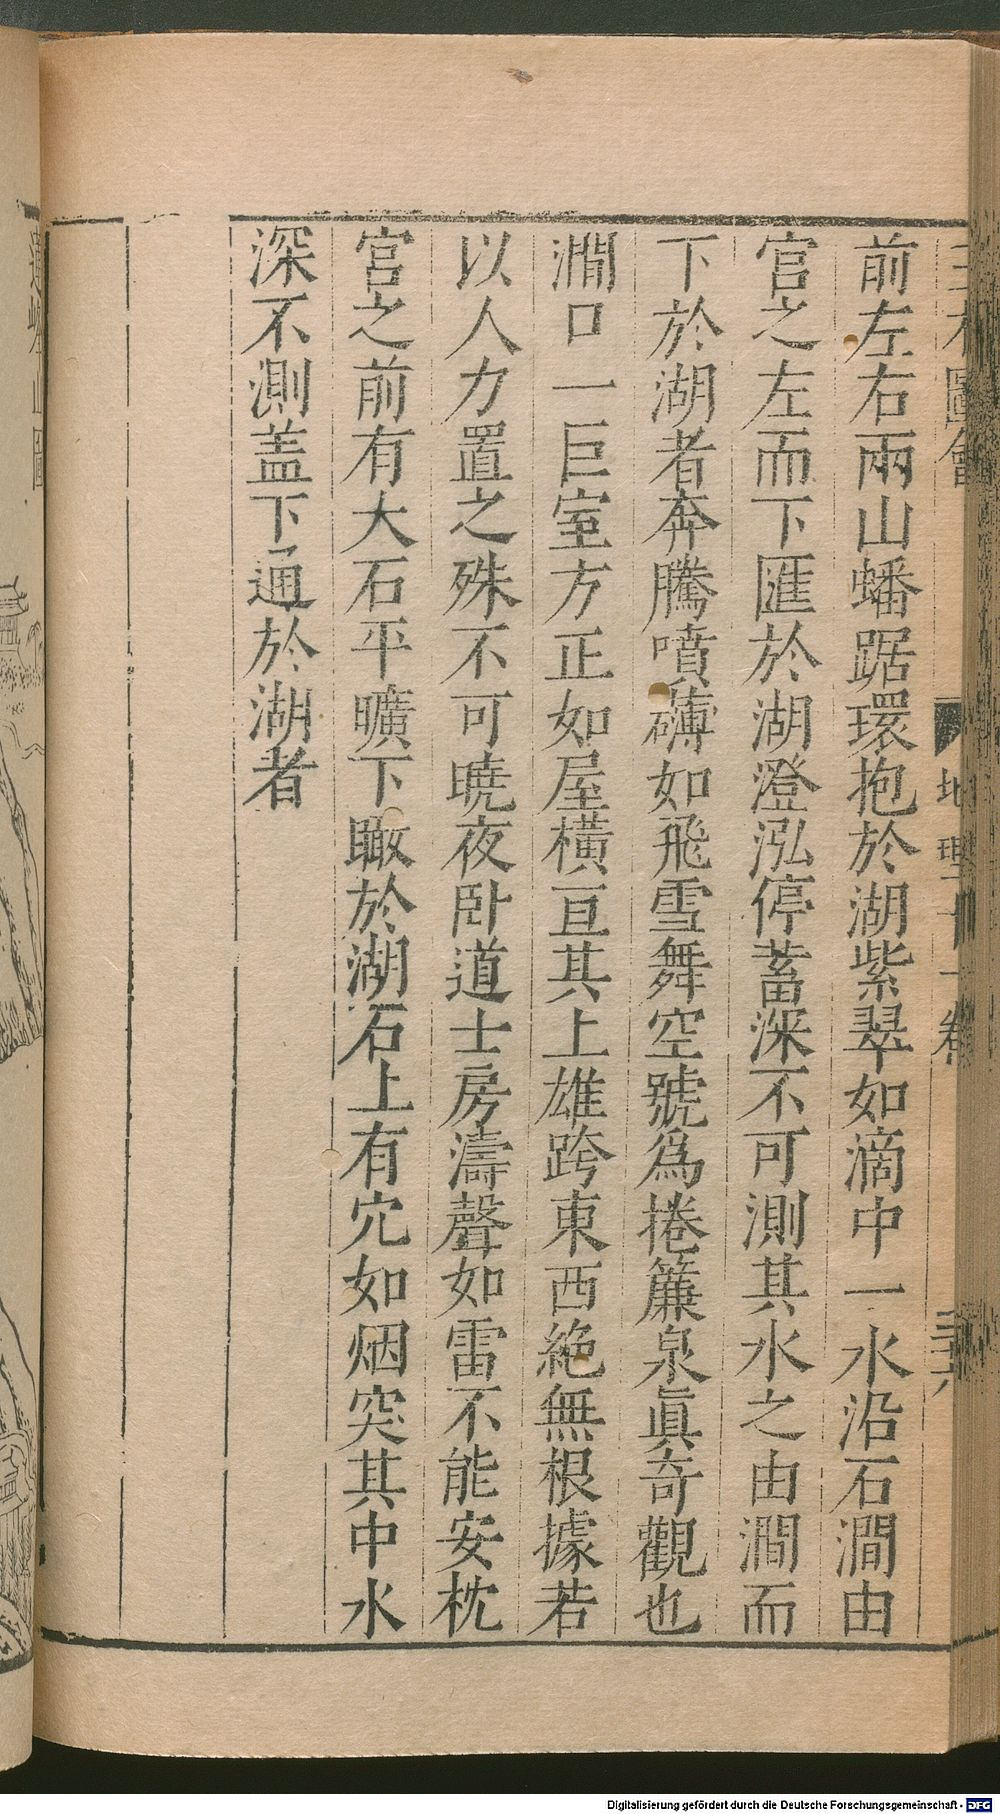 三才圖會 地理十一卷 三十六
前左右兩山蟠踞環抱於湖紫翠如滴中一水沿石澗由
宮之左而下匯於湖澄泓停蓄深不可測其水之由澗而
下於湖者奔騰噴礴如飛雪舞空號爲捲簾泉眞奇觀也
澗口一巨室方正如屋橫亘其上雄跨東西絶無根據若
以人力置之殊不可曉夜卧道士房濤聲如雷不能安枕
宮之前有大石平曠下瞰於湖石上有穴如烟突其中水
深不測盖下通於湖者
山圖
Digitalisierung gefördert durch die Deutsche Forschungsgemeinschaft - DFG